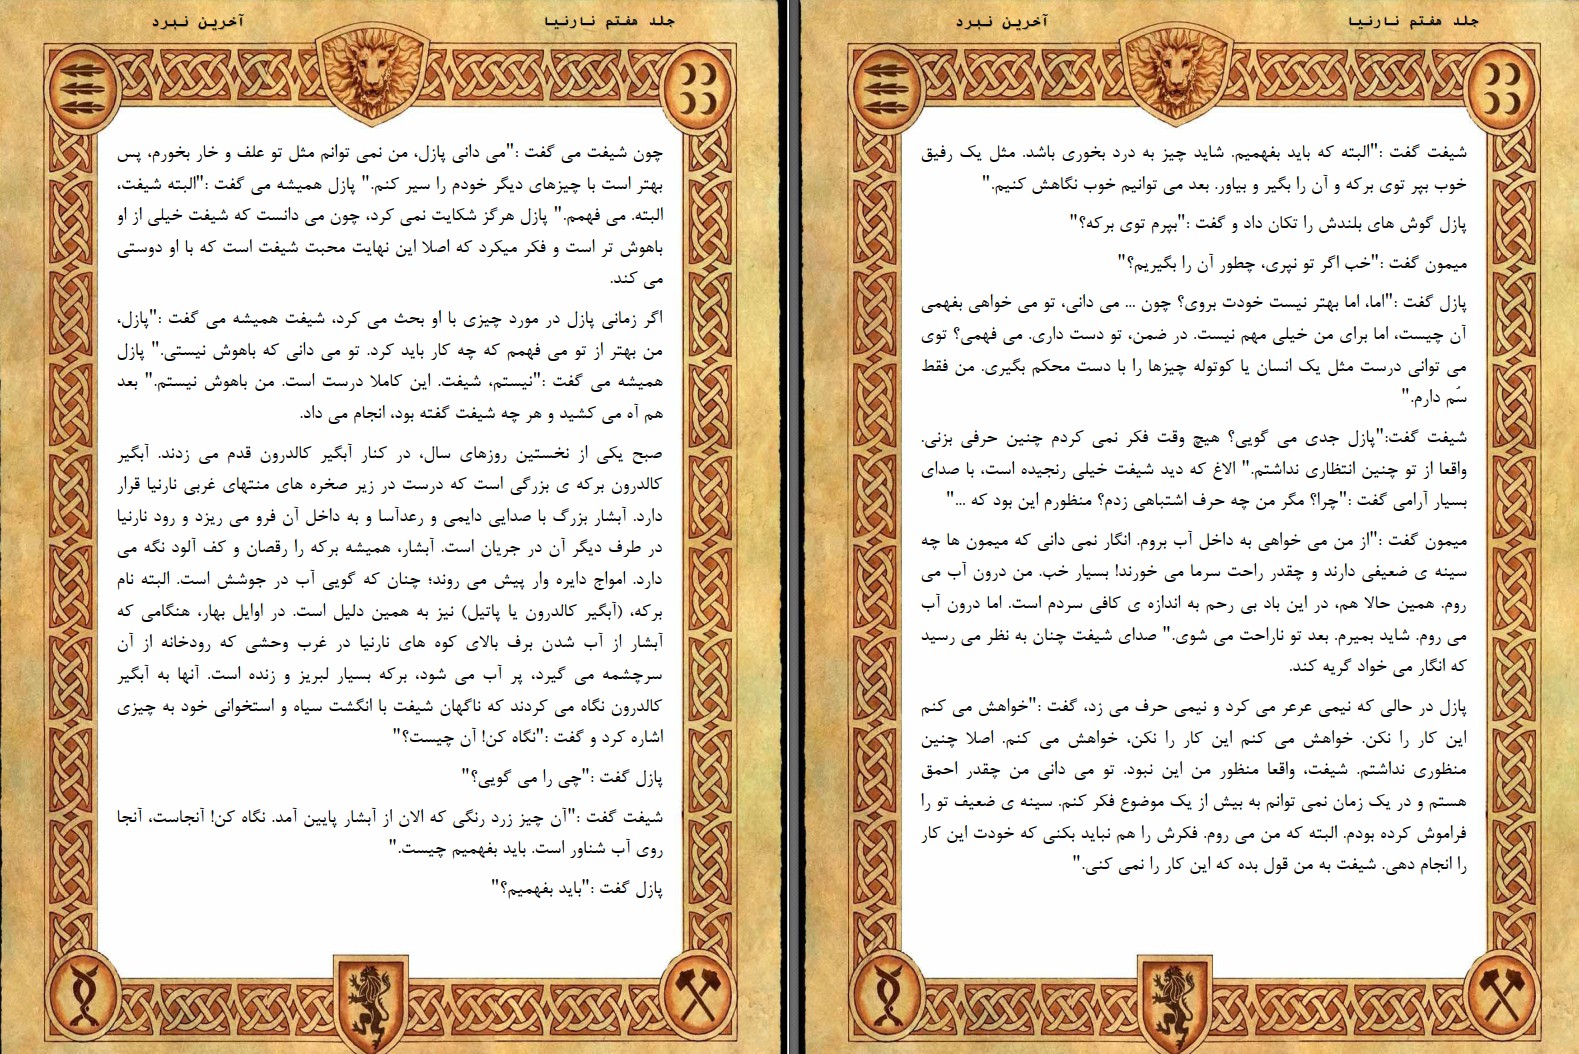 جلد هفتم نارنیا آخرین نبرد
چون شیفت می گفت :"می دانی پازل، من نمی توانم مثل تو علف و خار بخورم، پس
بهتر است با چیزهای دیگر خودم را سیر کنم." پازل همیشه می گفت :"البته شیفت،
البته. می فهمم." پازل هرگز شکایت نمی کرد، چون می دانست که شیفت خیلی از او
باهوش تر است و فکر میکرد که اصلا این نهایت محبت شیفت است که با او دوستی
می کند.
اگر زمانی پازل در مورد چیزی با او بحث می کرد، شیفت همیشه می گفت :"پازل،
من بهتر از تو می فهمم که چه کار باید کرد. تو می دانی که باهوش نیستی." پازل
همیشه می گفت :"نیستم، شیفت. این کاملا درست است. من باهوش نیستم." بعد
هم آه می کشید و هر چه شیفت گفته بود، انجام می داد.
صبح یکی از نخستین روزهای سال، در کنار آبگیر کالدرون قدم می زدند. آبگیر
کالدرون برکه ی بزرگی است که درست در زیر صخره های منتهای غربی نارنیا قرار
دارد. آبشار بزرگ با صدایی دایمی و رعدآسا و به داخل آن فرو می ریزد و رود نارنیا
در طرف دیگر آن در جریان است. آبشار، همیشه برکه را رقصان و کف آلود نگه می
دارد. امواج دایره وار پیش می روند؛ چنان که گویی آب در جوشش است. البته نام
برکه، (آبگیر کالدرون یا پاتیل) نیز به همین دلیل است. در اوایل بهار، هنگامی که
آبشار از آب شدن برف بالای کوه های نارنیا در غرب وحشی که رودخانه از آن
سرچشمه می گیرد، پر آب می شود، برکه بسیار لبریز و زنده است. آنها به آبگیر
کالدرون نگاه می کردند که ناگهان شیفت با انگشت سیاه و استخوانی خود به چیزی
اشاره کرد و گفت :"نگاه کن! آن چیست؟"
پازل گفت :"چی را می گویی؟"
شیفت گفت :"آن چیز زرد رنگی که الان از آبشار پایین آمد. نگاه کن! آنجاست، آنجا
روی آب شناور است. باید بفهمیم چیست."
پازل گفت :"باید بفهمیم؟"
جلد هفتم نارنیا آخرین نبرد
شیفت گفت :"البته که باید بفهمیم. شاید چیز به درد بخوری باشد. مثل یک رفیق
خوب بپر توی برکه و آن را بگیر و بیاور. بعد می توانیم خوب نگاهش کنیم."
پازل گوش های بلندش را تکان داد و گفت :"بپرم توی برکه؟"
میمون گفت :"خب اگر تو نپری، چطور آن را بگیریم؟"
پازل گفت :"اما، اما بهتر نیست خودت بروی؟ چون ... می دانی، تو می خواهی بفهمی
آن چیست، اما برای من خیلی مهم نیست. در ضمن، تو دست داری. می فهمی؟ توی
می توانی درست مثل یک انسان یا کوتوله چیزها را با دست محکم بگیری. من فقط
سُم دارم."
شیفت گفت:"پازل جدی می گویی؟ هیچ وقت فکر نمی کردم چنین حرفی بزنی.
واقعا از تو چنین انتظاری نداشتم." الاغ که دید شیفت خیلی رنجیده است، با صدای
بسیار آرامی گفت :"چرا؟ مگر من چه حرف اشتباهی زدم؟ منظورم این بود که ..."
میمون گفت :"از من می خواهی به داخل آب بروم. انگار نمی دانی که میمون ها چه
سینه ی ضعیفی دارند و چقدر راحت سرما می خورند! بسیار خب. من درون آب می
روم. همین حالا هم، در این باد بی رحم به اندازه ی کافی سردم است. اما درون آب
می روم. شاید بمیرم. بعد تو ناراحت می شوی." صدای شیفت چنان به نظر می رسید
که انگار می خواد گریه کند.
پازل در حالی که نیمی عرعر می کرد و نیمی حرف می زد، گفت :"خواهش می کنم
این کار را نکن. خواهش می کنم این کار را نکن، خواهش می کنم. اصلا چنین
منظوری نداشتم. شیفت، واقعا منظور من این نبود. تو می دانی من چقدر احمق
هستم و در یک زمان نمی توانم به بیش از یک موضوع فکر کنم. سینه ی ضعیف تو را
فراموش کرده بودم. البته که من می روم. فکرش را هم نباید بکنی که خودت این کار
را انجام دهی. شیفت به من قول بده که این کار را نمی کنی."